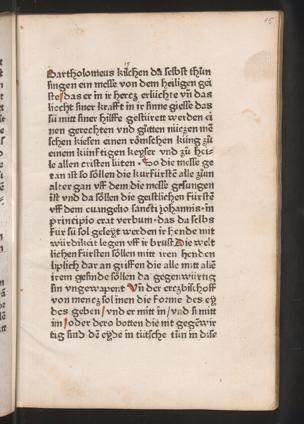 15
Bartholomeus kilchen da selbst thun
singen ein messe von dem heiligen gei
ste/ das er in ir hertz erlüchte vn̄ das
liecht siner krafft in ir sinne giesse das
sü mitt siner hilffe gesturett werden ei
nen gerechten vnd gůtten nützen mē
schen kiesen einen römschen küng zů
einem künftigen keyser vnd zů heil
le allen cristen lüten. So die messe ge
tan ist so söllen die kurfürstē alle zům
alter gan vff dem die messe gesungen
ist vnd da söllen die geistlichen fürstē
vff dem euangelio sancti Johannis. in
principio erat verbum. das da selbs
für sü sol geleyt werden ir hende mit
würdikait legen vff ir brust Die welt
lichen fürsten söllen mitt iren henden
liplich dar an griffen die alle mitt allē
irem gesinde söllen da gegenwürtig
sin vngewapent Vn̄ der ertzbischoff
von mentz sol inen die forme des ey
des geben/ vnd er mitt in/ vnd si mitt
im/ oder dero botten die mit gegēwir
tig sind dē eyde in tütsche tün in dise